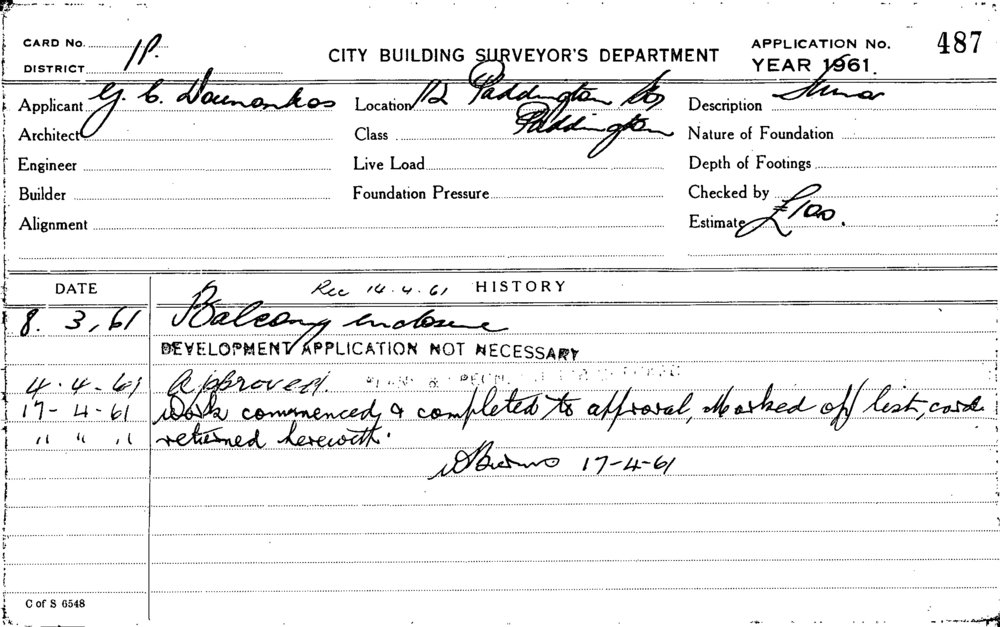 CARD No. 1P.
DISTRICT
CITY BUILDING SURVEYOR'S DEPARTMENT
APPLICATION No. 487
YEAR 1961.
Applicant G. C.
Location 12 Paddington St,
Paddington
Description Minor
Architect
Class
Nature of Foundation
Engineer
Live Load
Depth of Footings
Builder
Foundation Pressure
Checked by
Alignment
Estimate £100.
DATE
Rec 14.4.61 HISTORY
8. 3, 61 Balcony enclosure
DEVELOPMENT APPLICATION NOT NECESSARY
4.4-61 Approved.
17-4-61 Work commenced & completed to approval, Marked off list, card
" " " returned herewith.
17-4-61
C of S 6548